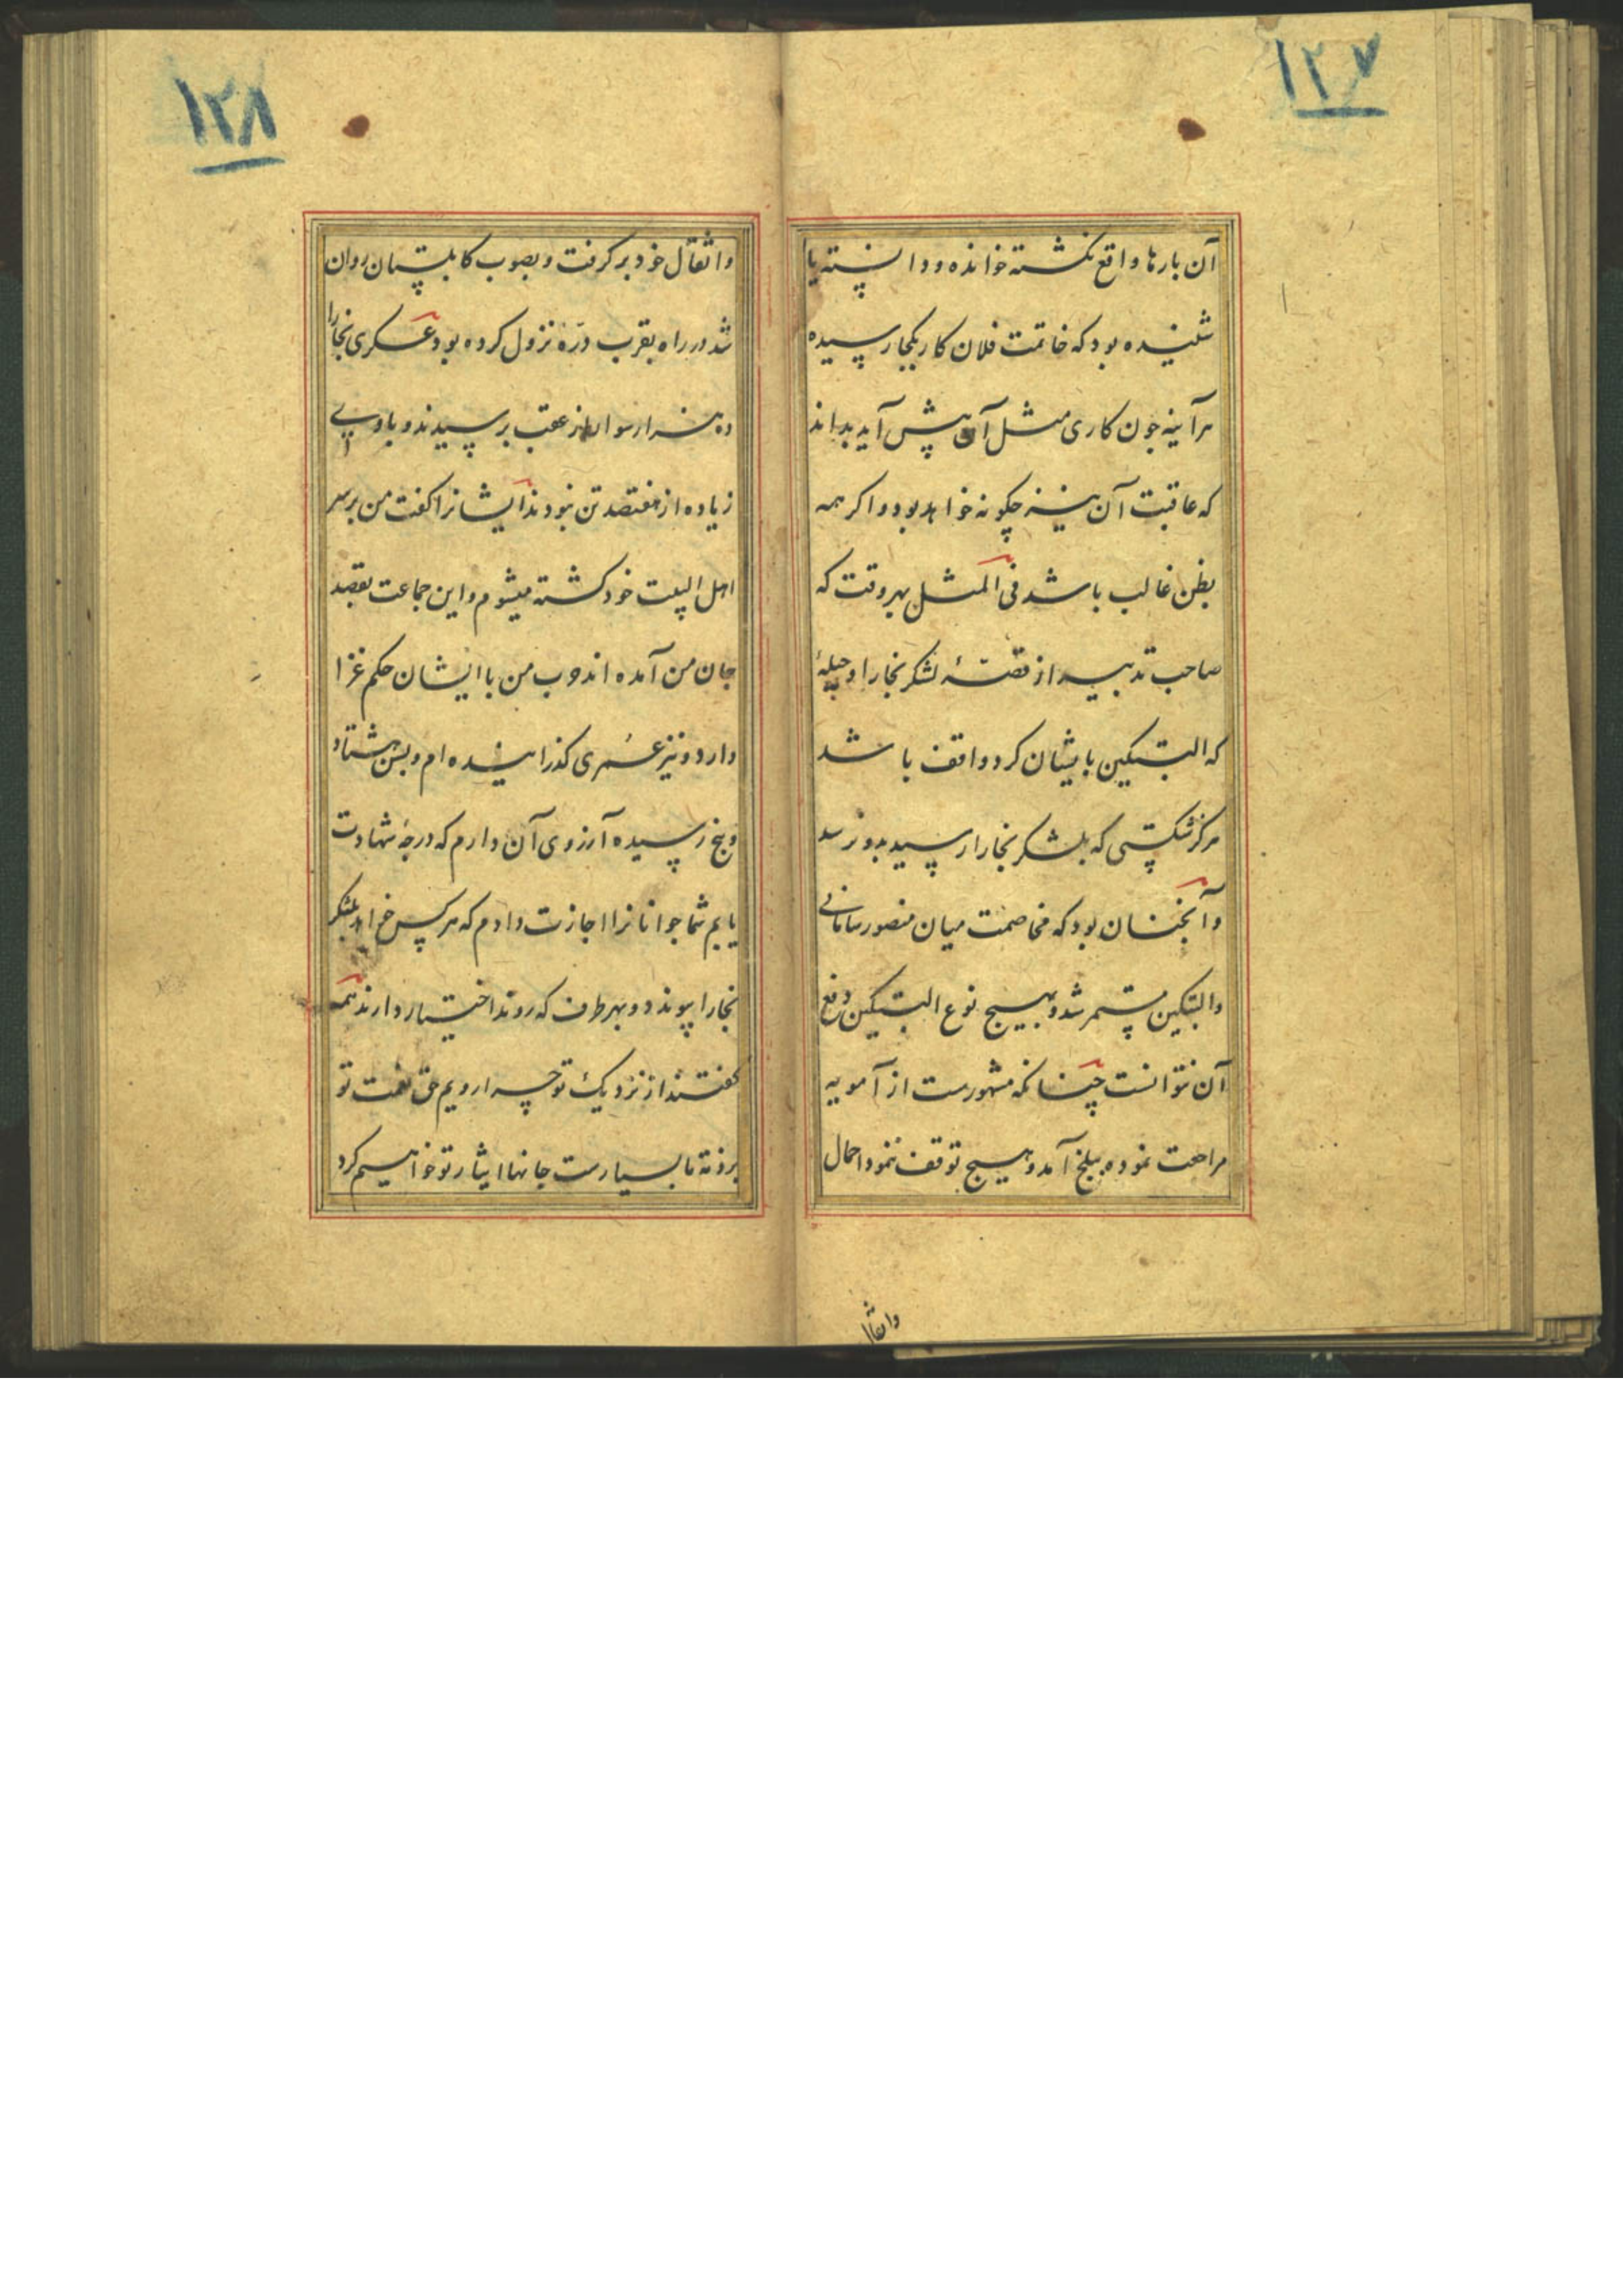 ۱۲۷
آن بارها واقع نکشته خوانده و دانسته یا
شنیده بود که خاتمت فلان کار بکجا رسیده
هرآینه جون کاری مثل آن پیش آید بداند
که عاقبت آن نیز چکونه خواهد بود و اکر همه
بظن غالب باشد فی المثل بهر وقت که
صاحب تدبیر از قصۀ لشکر بخارا و حیلۀ
که البتکین با یشان کرد واقف باشد
هرکز شکستی که بلشکر بخارا رسید بدو نرسد
و آنجنان بود که مخاصمت میان منصور سامانی
والبتکین مستمر شد و بهیچ نوع البتکین دفع
آن نتوانست چنانکه مشهورست از آمویه
مراجعت نموده ببلخ آمد و هیچ توقف ننمود احمال
واثقا
۱۲۸
واثقال خود بر کرفت و بصوب کابلستان روان
شد در راه بقرب درۀ نزول کرده بود عسکری بخارا
ده هزار سوار از عقب برسیدند و با وی
زیاده از هفتصد تن نبودند ایشانرا کفت من بر سر
اهل البیت خود کشته میشوم و این جماعت بقصد
جان من آمده اند و حرب من با ایشان حکم غزا
دارد و نیز عمری کذرانیده ام و بسن هشتاد
و پنج رسیده آرزوی آن دارم که درجۀ شهادت
یابم شما جوانانرا اجازت دادم که هر کس خواهد بلشکر
بخارا پیوندد و بهر طرف که روند اختیار دارند همه
کفتند از نزدیک تو چرا رویم حق نعمت تو
بر ذمۀ ما بسیارست جانها ایثار تو خواهیم کرد